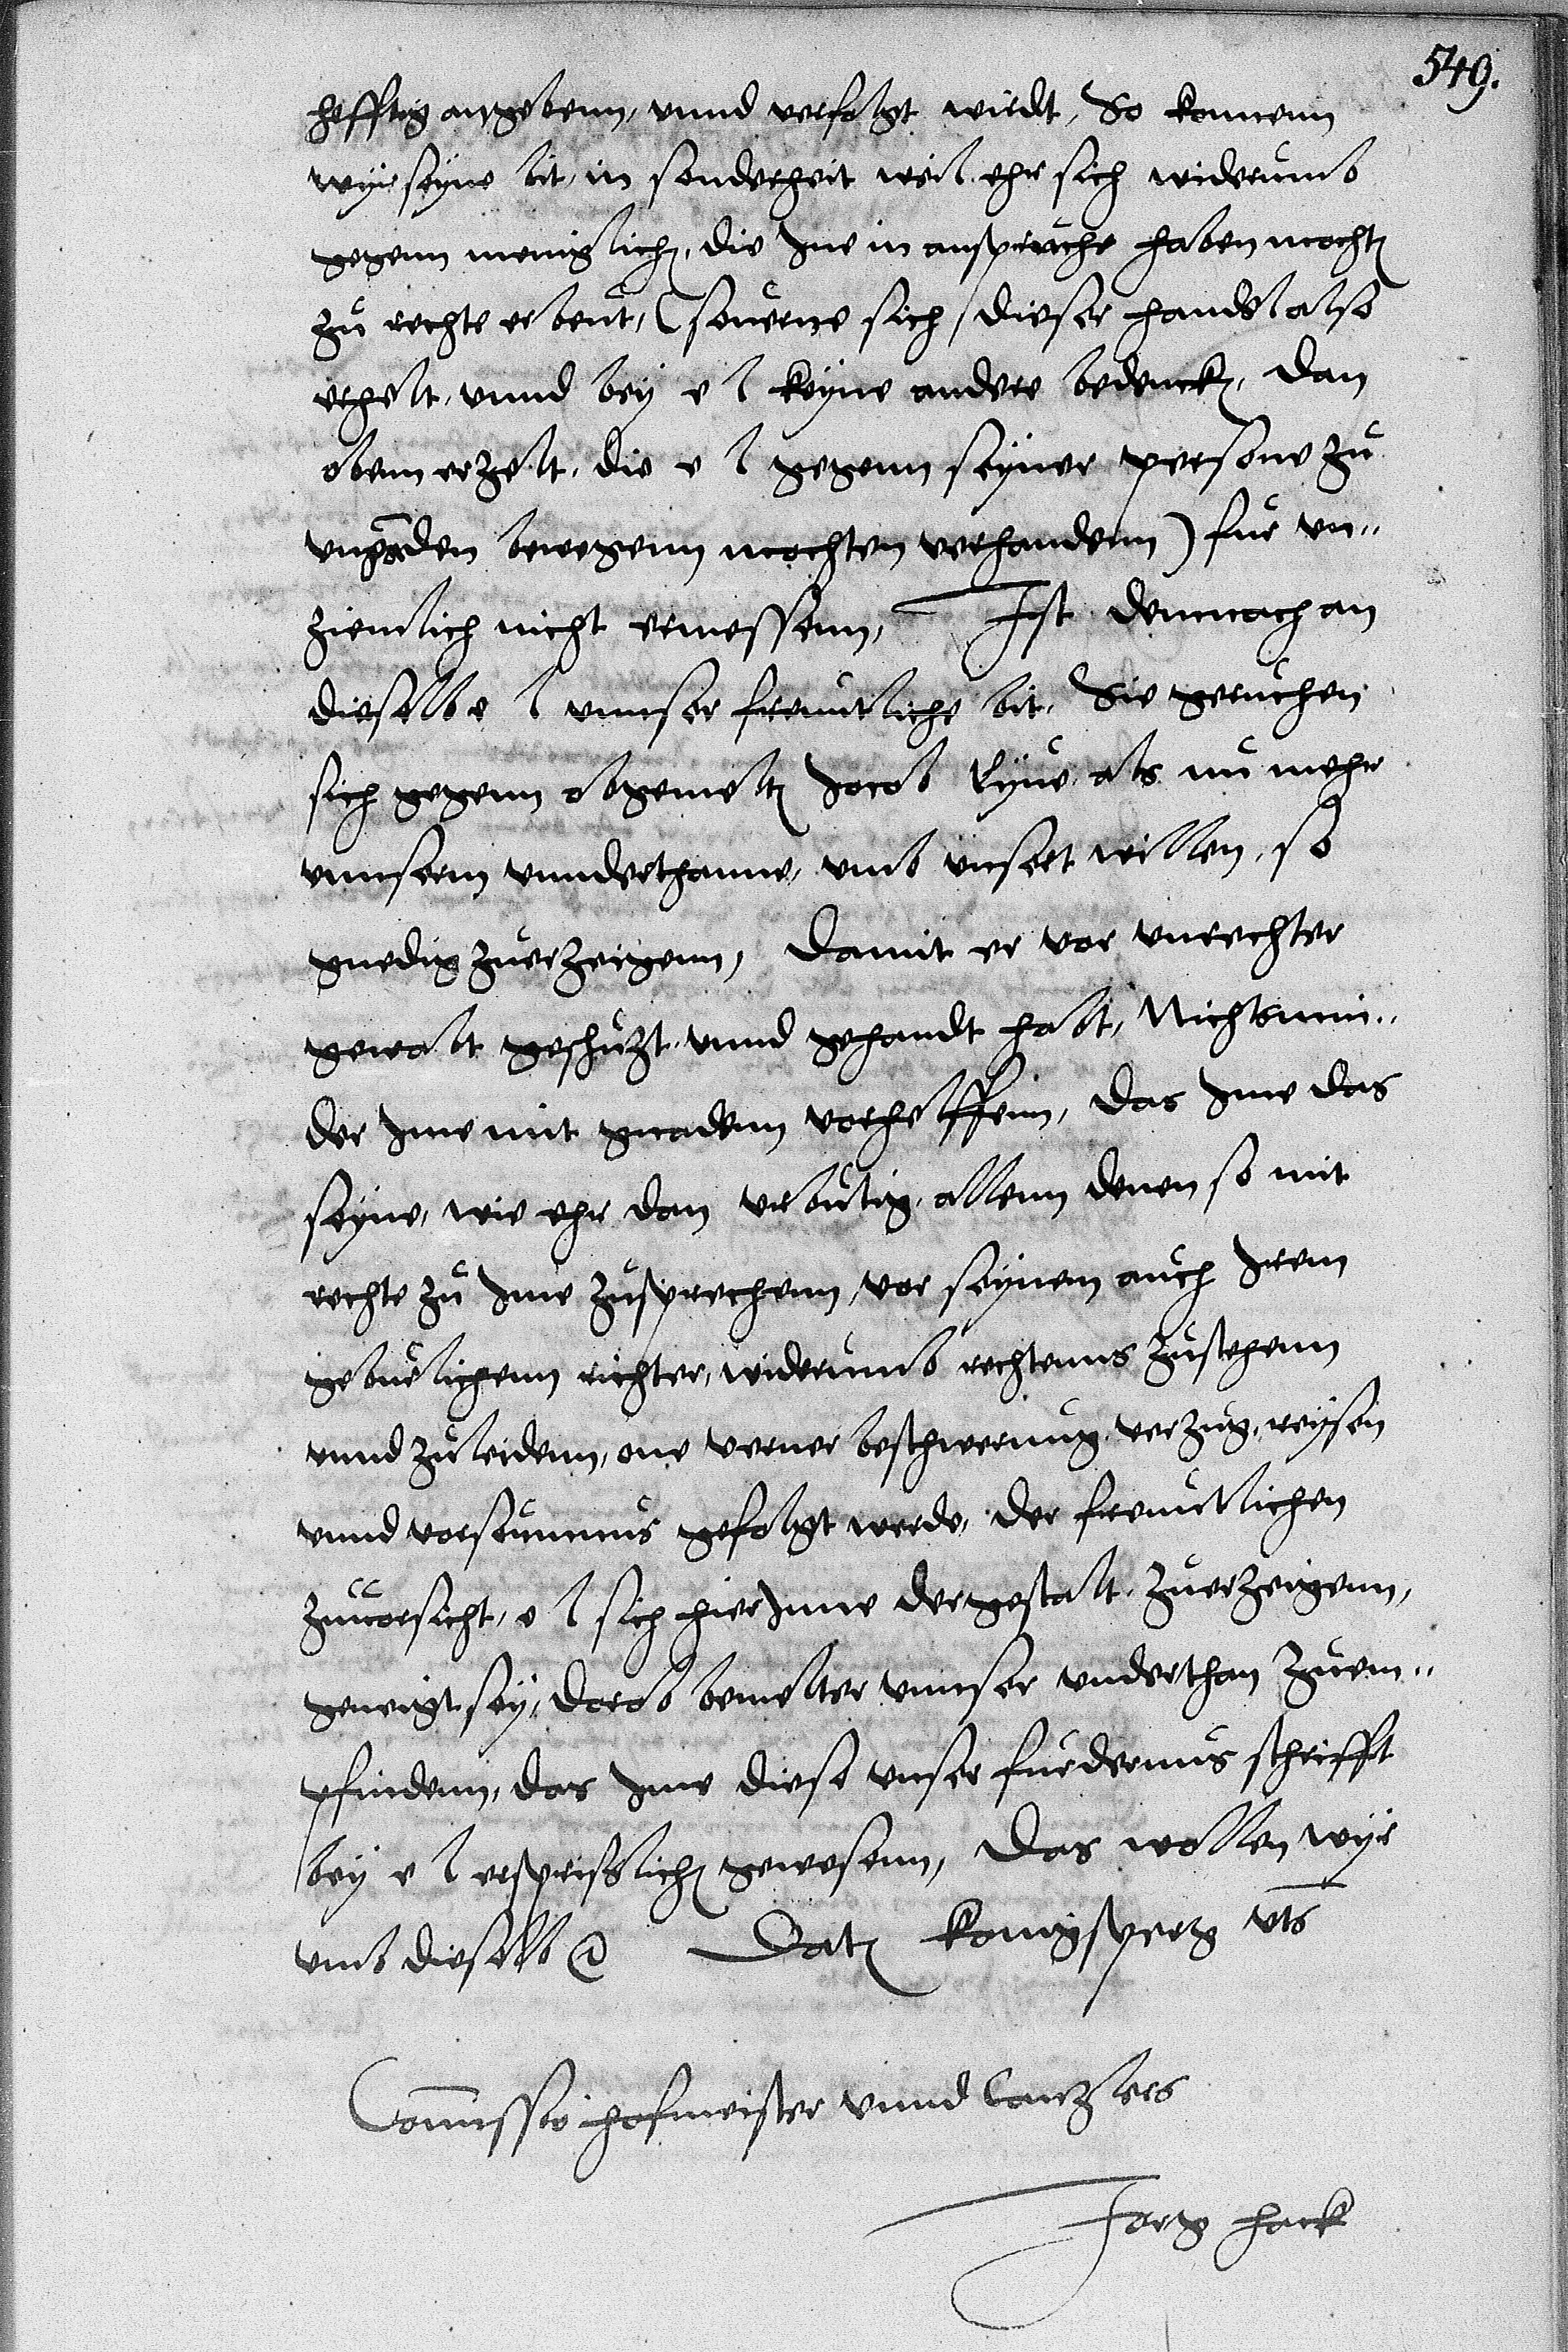 549.
hefftig angebenn, vnnd verfolgt wirdt, So konnenn
wyr seyne bit, in sonderheit weil ehr sich widerumb
gegenn meniglich, die Jne in anspruche haben mocht
zu rechte erbeut, (souerne sich dieser handel also
erhelt, vnnd bey e l keyne andere bedenck, dan
obenn erzelt, die e l gegenn seyner persone zu
vngnaden bewegenn mochten verhandenn) fur vn¬
ziemlich nicht ermessenn, Jst demnach an
dieselb e l vnnser freuntliche bit, Sie geruchen
sich gegenn obgemelt Jacob als nu mehr
vnnserm vnnderthanne, vmb vnsert willen, so
gnedig zuerzeigenn, damit er vor vnrechter
gewalt geschuzt vnnd gehandt habt, Nichtsmin¬
der Jme mit gnadenn vorhelffenn, das Jme das
seyne, wie ehr dan erbutig, allenn denen so mit
rechte zu Jme zusprechenn, vor seynem auch Jrem
geburlichenn richter, widerumb rechtenns zustehenn
vnnd zuleidenn, one verner beschwerung, verzug, reysen
vnnd vorseumnus gefolgt werde, der freuntlichen
zuuorsicht, e l sich hier Jnne dergestalt zuerzeigenn,
geneigt sey, darob bemelter vnnser vnderthan zuem¬
pfindenn, das Jme diese vnser furdernus schrifft
bey e l ersprießlich gewesenn, das wollen wyr
vmb dieselb e Dat Konigsperg vts
Comissio hofmeister vnnd Canzlers
Jorg hack